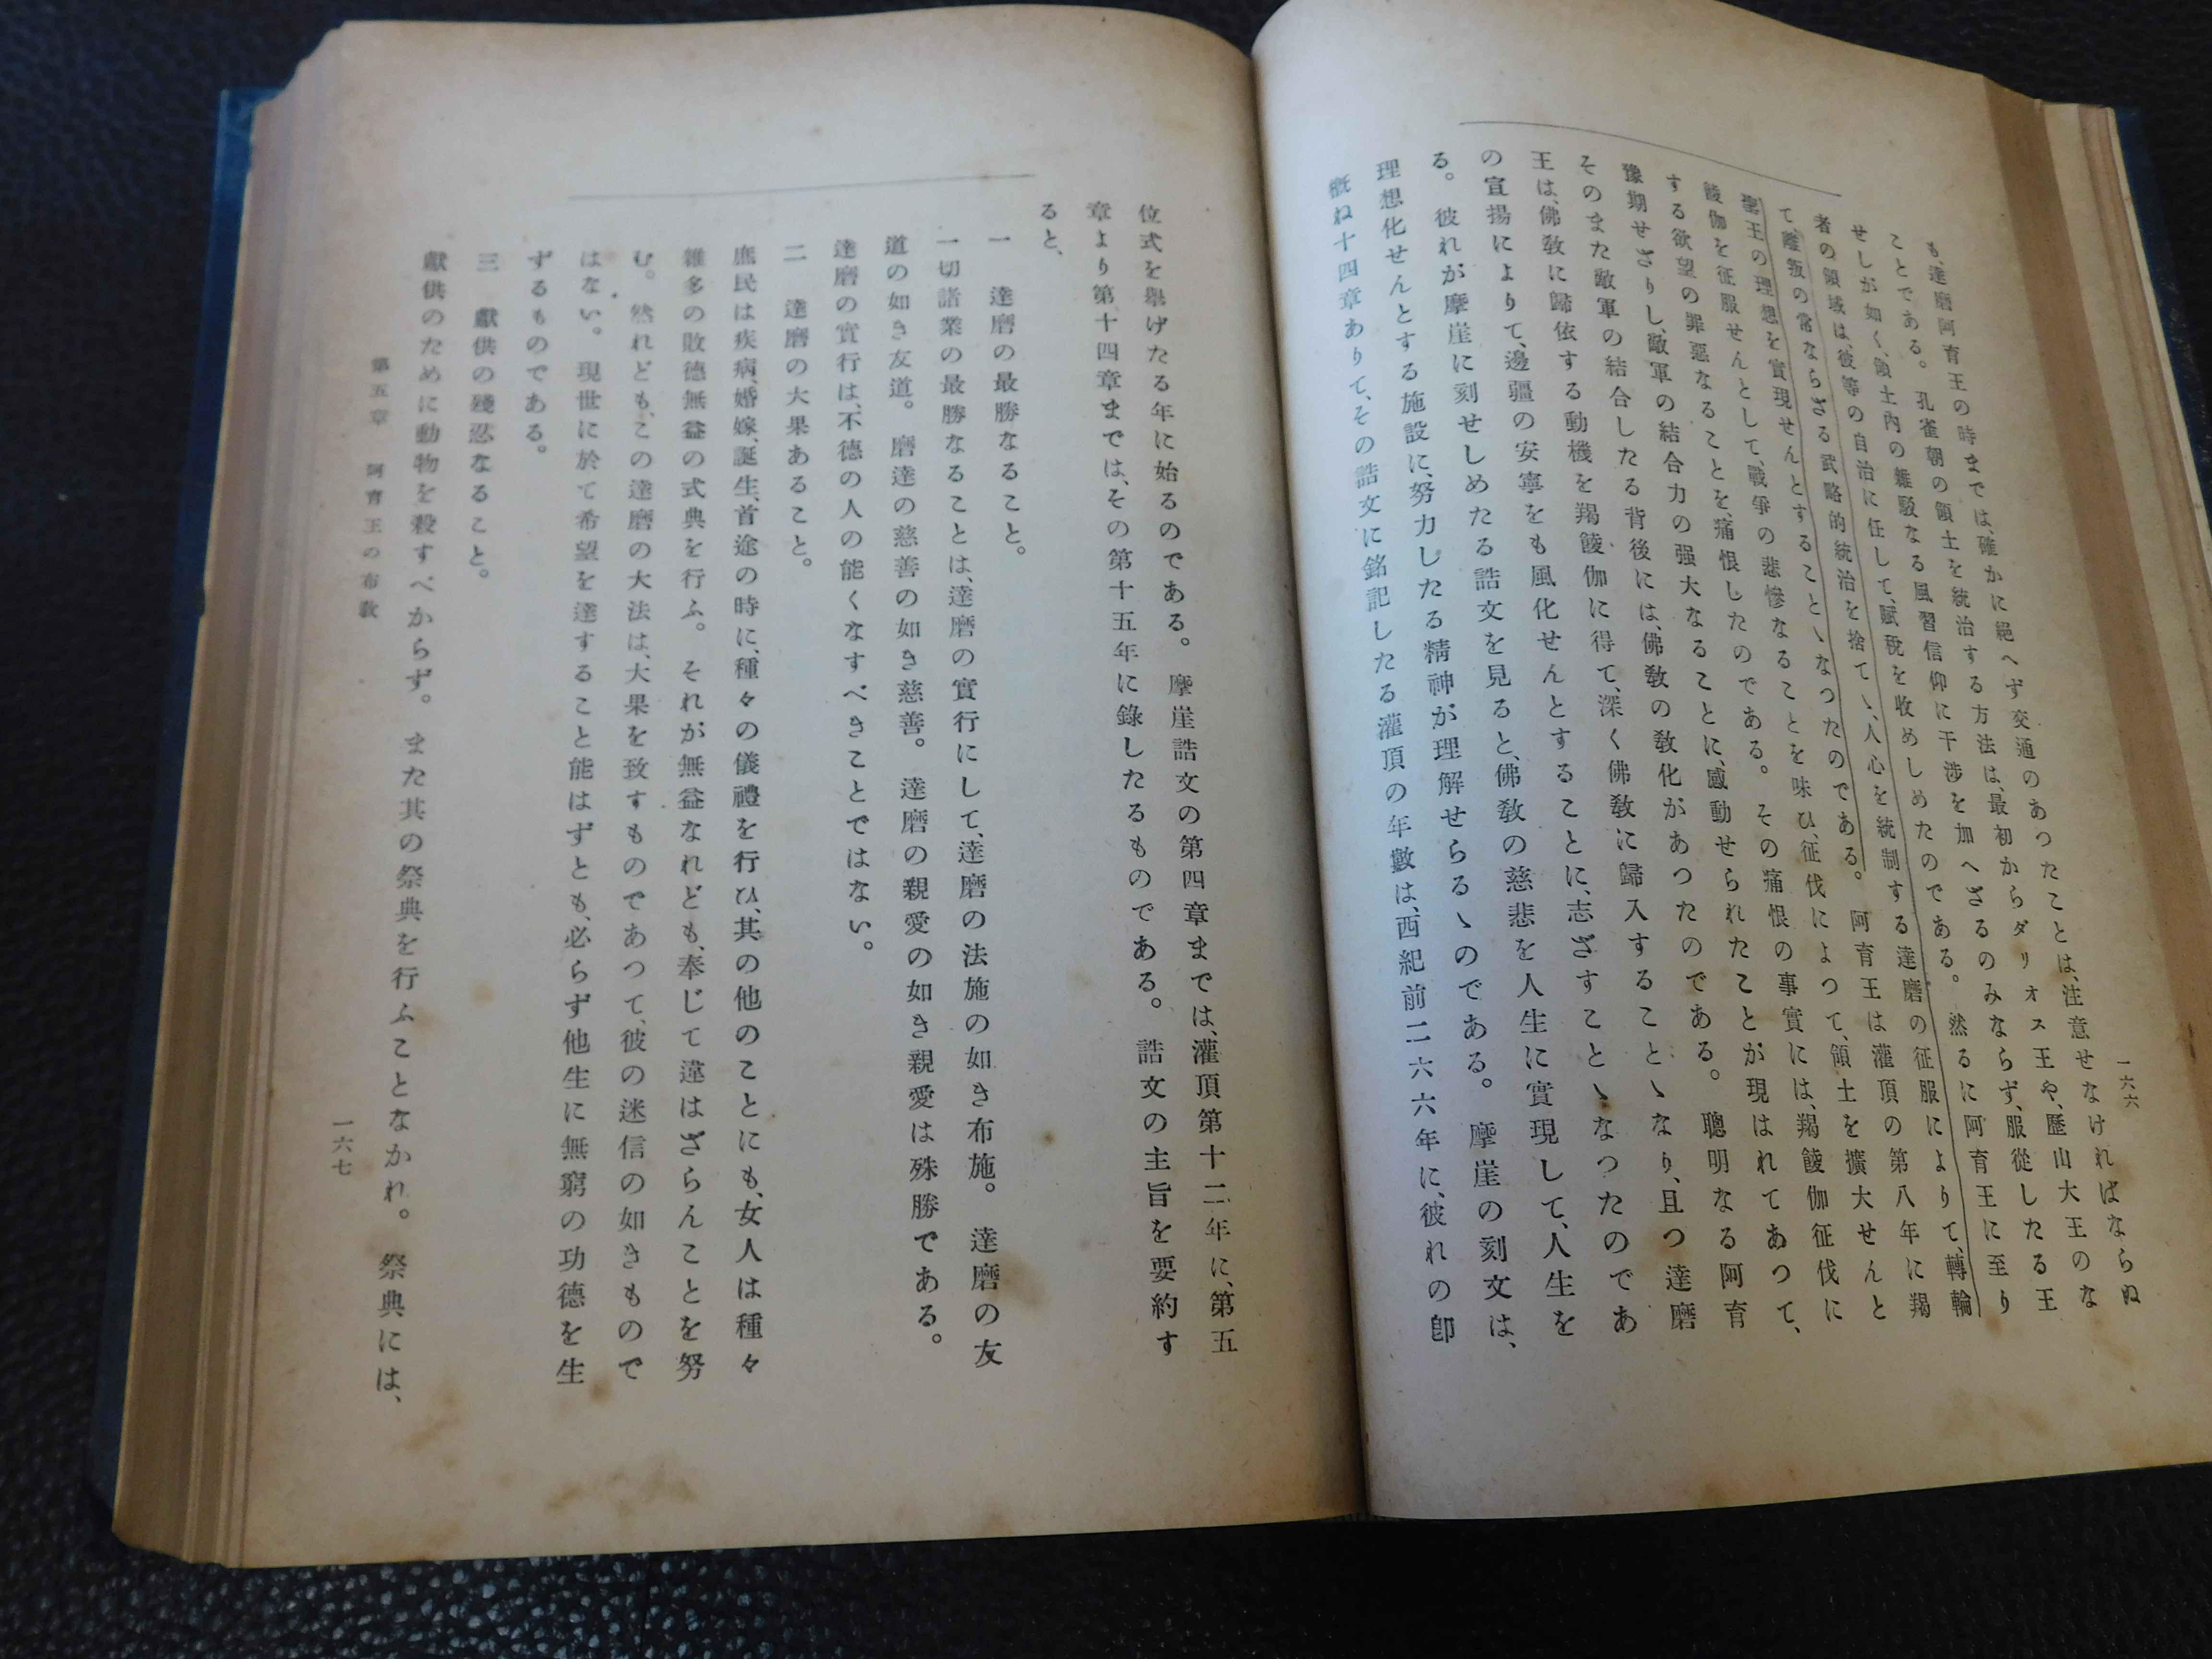 一六六
も、達磨阿育王の時までは、確かに絕へず交通のあつたことは、注意せなければならぬ
ことである。孔雀朝の領土を統治する方法は、最初からダリオス王や、歷山大王のな
せしが如く、領土內の雜駁なる風習信仰に干涉を加へざるのみならず、服從したる王
者の領域は、彼等の自治に任して、賦稅を收めしめたのである。然るに阿育王に至り
て離叛の常ならざる武略的統治を捨てゝ、人心を統制する達磨の征服によりて、轉輪
聖王の理想を實現せんとすることゝなつたのである。阿育王は灌頂の第八年に羯
𩜁伽を征服せんとして、戰爭の悲慘なることを味ひ、征伐によつて、領土を擴大せんと
する欲望の罪惡なることを、痛恨したのである。その痛恨の事實には、羯𩜁伽征伐に
豫期せざりし、敵軍の結合力の强大なることに、感動せられたことが現はれてあつて、
そのまた敵軍の結合したる背後には、佛敎の敎化があつたのである。聰明なる阿育
王は、佛敎に歸依する動機を羯𩜁伽に得て、深く佛敎に歸入することゝなり、且つ達磨
の宣揚によりて、邊疆の安寧をも風化せんとすることに、志ざすことゝなつたのであ
る。彼れが摩崖に刻せしめたる誥文を見ると、佛敎の慈悲を人生に實現して、人生を
理想化せんとする施設に、努力したる精神が理解せらるゝのである。摩崖の刻文は、
槪ね十四章ありて、その誥文に銘記したる灌頂の年數は、西紀前二六六年に、彼れの卽
位式を舉げたる年に始るのである。摩崖誥文の第四章までは、灌頂第十二年に、第五
章より第十四章までは、その第十五年に錄したるものである。誥文の主旨を要約す
ると、
一　達磨の最勝なること。
一切諸業の最勝なることは、達磨の實行にして、達磨の法施の如き布施。達磨の友
道の如き友道。磨達の慈善の如き慈善。達磨の親愛の如き親愛は殊勝である。
達磨の實行は、不德の人の能くなすべきことではない。
二　達磨の大果あること。
庶民は疾病、婚嫁、誕生、首途の時に、種々の儀禮を行ひ、其の他のことにも、女人は種々
雜多の敗德無益の式典を行ふ。それが無益なれども、奉じて違はざらんことを努
む。然れども、この達磨の大法は、大果を致すものであつて、彼の迷信の如きもので
はない。現世に於て希望を達すること能はずとも、必らず他生に無窮の功德を生
ずるものである。
三　獻供の殘忍なること。
獻供のために動物を殺すべからず。また其の祭典を行ふことなかれ。祭典には、
第五章　阿育王の布敎
一六七